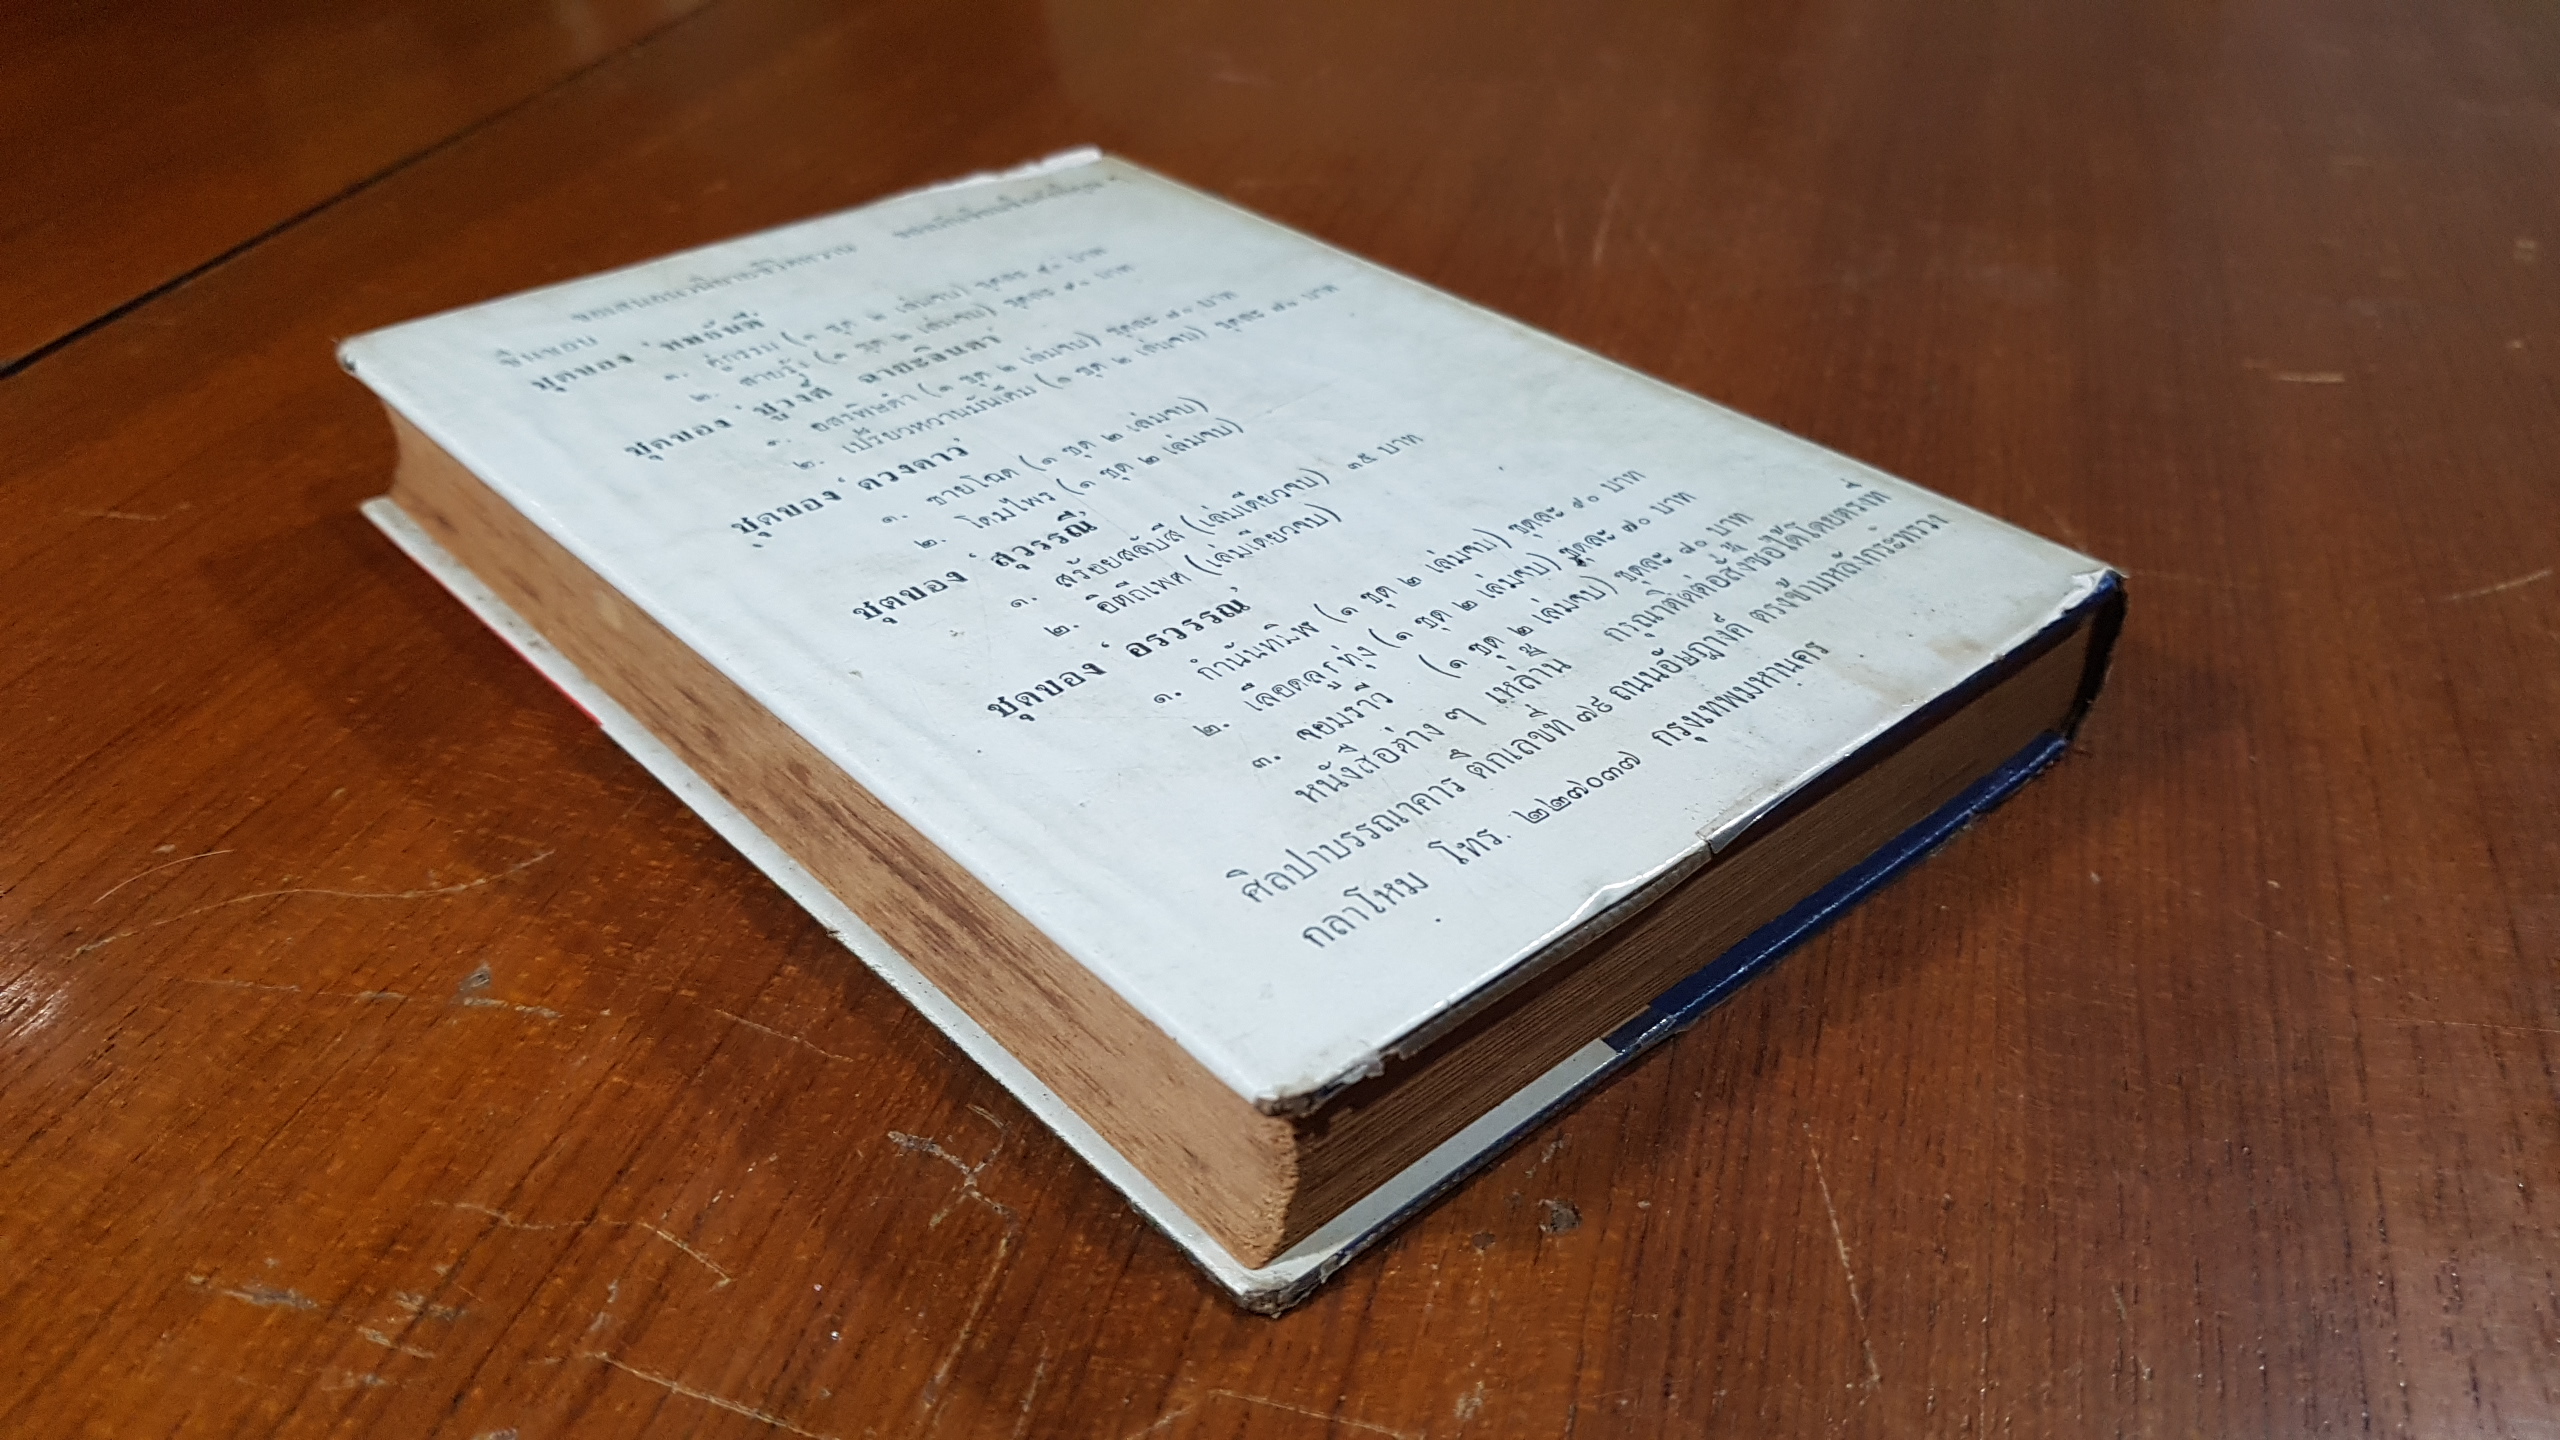 ขอเสนอนวนิยายชีวิตหวาน
ชื่นชอบ
ชุดของ 'ทมยันตี'
๑. คู่กรรม (๑ ชุด ๒ เล่มจบ) ชุดละ ๘๐ บาท
๒. สายรุ้ง (๑ ชุด ๒ เล่มจบ) ชุดละ ๙๐ บาท
ชุดของ 'ชูวงศ์ ฉายะจินดา'
๑. อสรพิษดำ (๑ ชุด ๒ เล่มจบ) ชุดละ ๘๐ บาท
๒. เปรี้ยวหวานมันเค็ม (๑ ชุด ๒ เล่มจบ) ชุดละ ๗๐ บาท
ชุดของ 'ดวงดาว'
๑. ชายโฉด (๑ ชุด ๒ เล่มจบ)
๒. โดมไพร (๑ ชุด ๒ เล่มจบ)
ชุดของ 'สุวรรณี'
๑. สร้อยสลับสี (เล่มเดียวจบ) ๓๕ บาท
๒. อิตถีเพศ (เล่มเดียวจบ)
ชุดของ 'อรวรรณ'
๑. กำนันทมิฬ (๑ ชุด ๒ เล่มจบ) ชุดละ ๙๐ บาท
๒. เลือดลูกทุ่ง (๑ ชุด ๒ เล่มจบ) ชุดละ ๗๐ บาท
๓. จอมราวี (๑ ชุด ๒ เล่มจบ) ชุดละ ๘๐ บาท
หนังสือต่าง ๆ เหล่านี้ กรุณาติดต่อสั่งซื้อได้โดยตรงที่
ศิลปาบรรณาคาร ตึกเลขที่ ๗๙ ถนนอัษฎางค์ ตรงข้ามหลังกระทรวง
กลาโหม โทร. ๒๒๗๐๓๗ กรุงเทพมหานคร